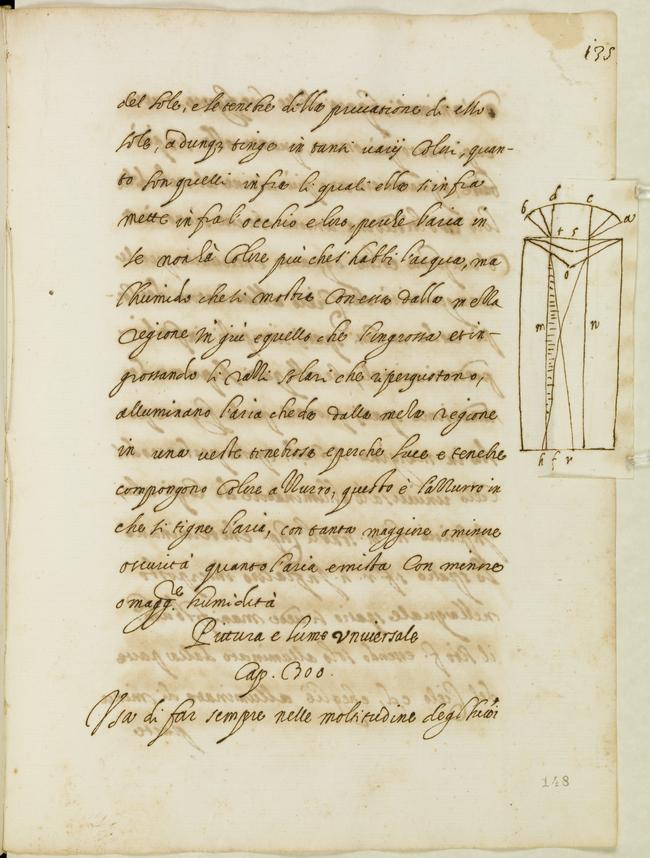 135
del Sole, e le tenebre della privatione di esso
sole, adunqz tinge in tanti varij Colori, quan-
to son quelli infra li quali ella si infra
mette infra l'occhio e loro, perche l'aria in
se non hà Colore più che s'habbi l'acqua, ma
l'humido che si mostra con essa dalla mezza
regione in giù e quello che l'ingrossa et in-
grossando li razzi solari che vi percuotono,
alluminano l'aria che da dalla meza regione
in una veste tenebrosa e perche luce e tenebre
compongono Colore azzurro, questo è l'azzurro in
che si tigne l'aria, con tanta maggiore o minore
oscurità quanto l'aria e mista con minore
o magg.re humidità
Pittura e lume vniversale
Cap. C300.
Vsa di far sempre nelle moltitudine degl'huoi
b d c a
t s
o
m n
h f r
148